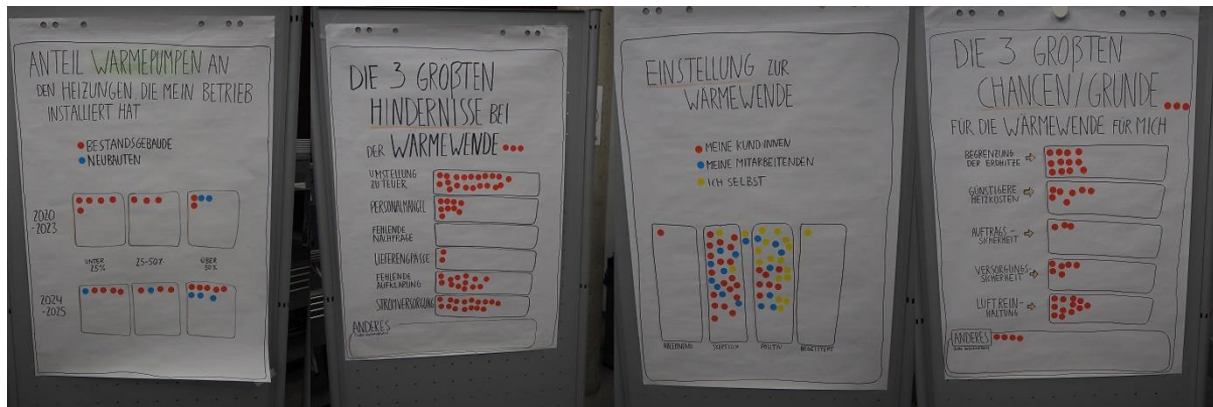 ANTEIL WÄRMEPUMPEN AN
DEN HEIZUNGEN, DIE MEIN BETRIEB
INSTALLIERT HAT
BESTANDSGEBÄUDE
NEUBAUTEN
2020
-2023
UNTER
25%
25-50%
ÜBER
50%
2024
-2025
DIE 3 GRÖßTEN
HINDERNISSE BEI
DER WÄRMEWENDE
UMSTELLUNG
ZU TEUER
PERSONALMANGEL
FEHLENDE
NACHFRAGE
LIEFERENGPÄSSE
FEHLENDE
AUFKLÄRUNG
STROMVERSORGUNG
ANDERES
EINSTELLUNG ZUR
WÄRMEWENDE
MEINE KUND:INNEN
MEINE MITARBEITENDEN
ICH SELBST
ABLEHNEND
SKEPTISCH
POSITIV
BEGEISTERT
DIE 3 GRÖßTEN
CHANCEN/GRÜNDE
FÜR DIE WÄRMEWENDE FÜR MICH
BEGRENZUNG
DER ERDHITZE
GÜNSTIGERE
HEIZKOSTEN
AUFTRAGS-
SICHERHEIT
VERSORGUNGS-
SICHERHEIT
LUFTREIN-
HALTUNG
ANDERES